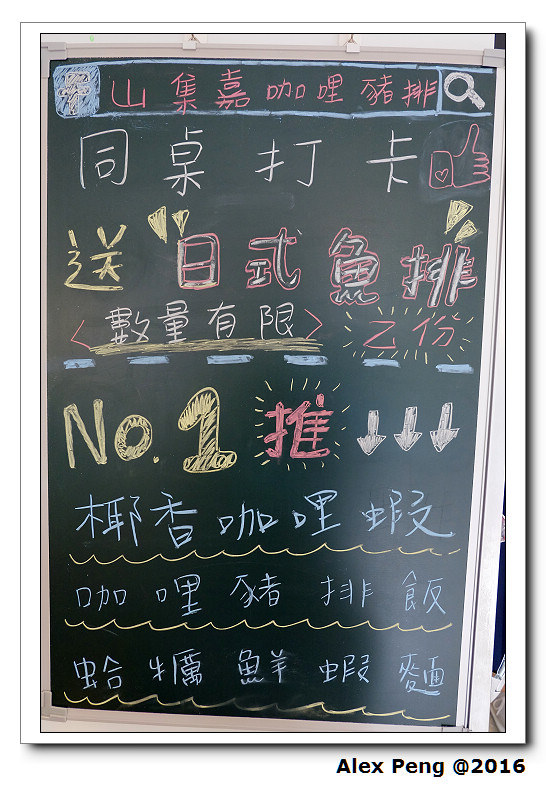 山集嘉咖哩豬排
同桌打卡
送日式魚排
<數量有限> 乙份
No.1推↓↓↓
椰香咖哩蝦
咖哩豬排飯
蛤蠣鮮蝦麵
Alex Peng @2016